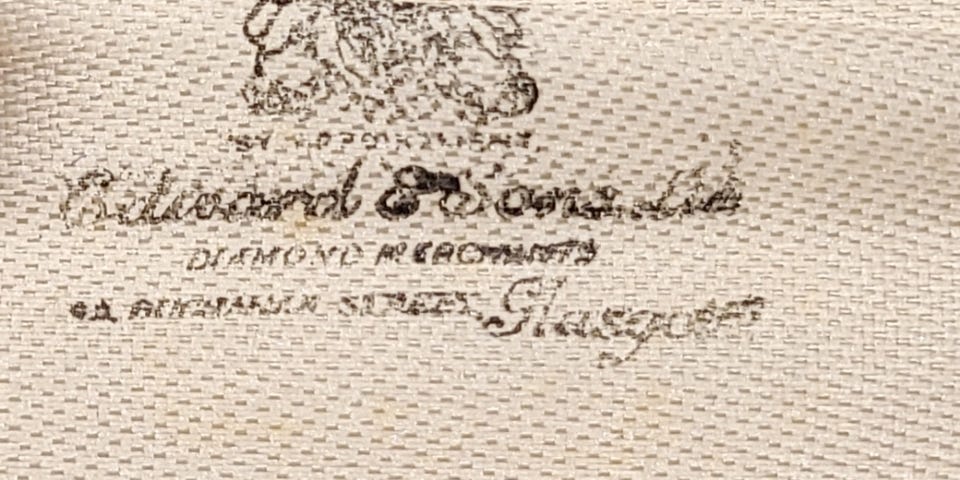 BY APPOINTMENT.
Edward & Sons. Ltd
DIAMOND MERCHANTS
BUCHANAN STREET, Glasgow